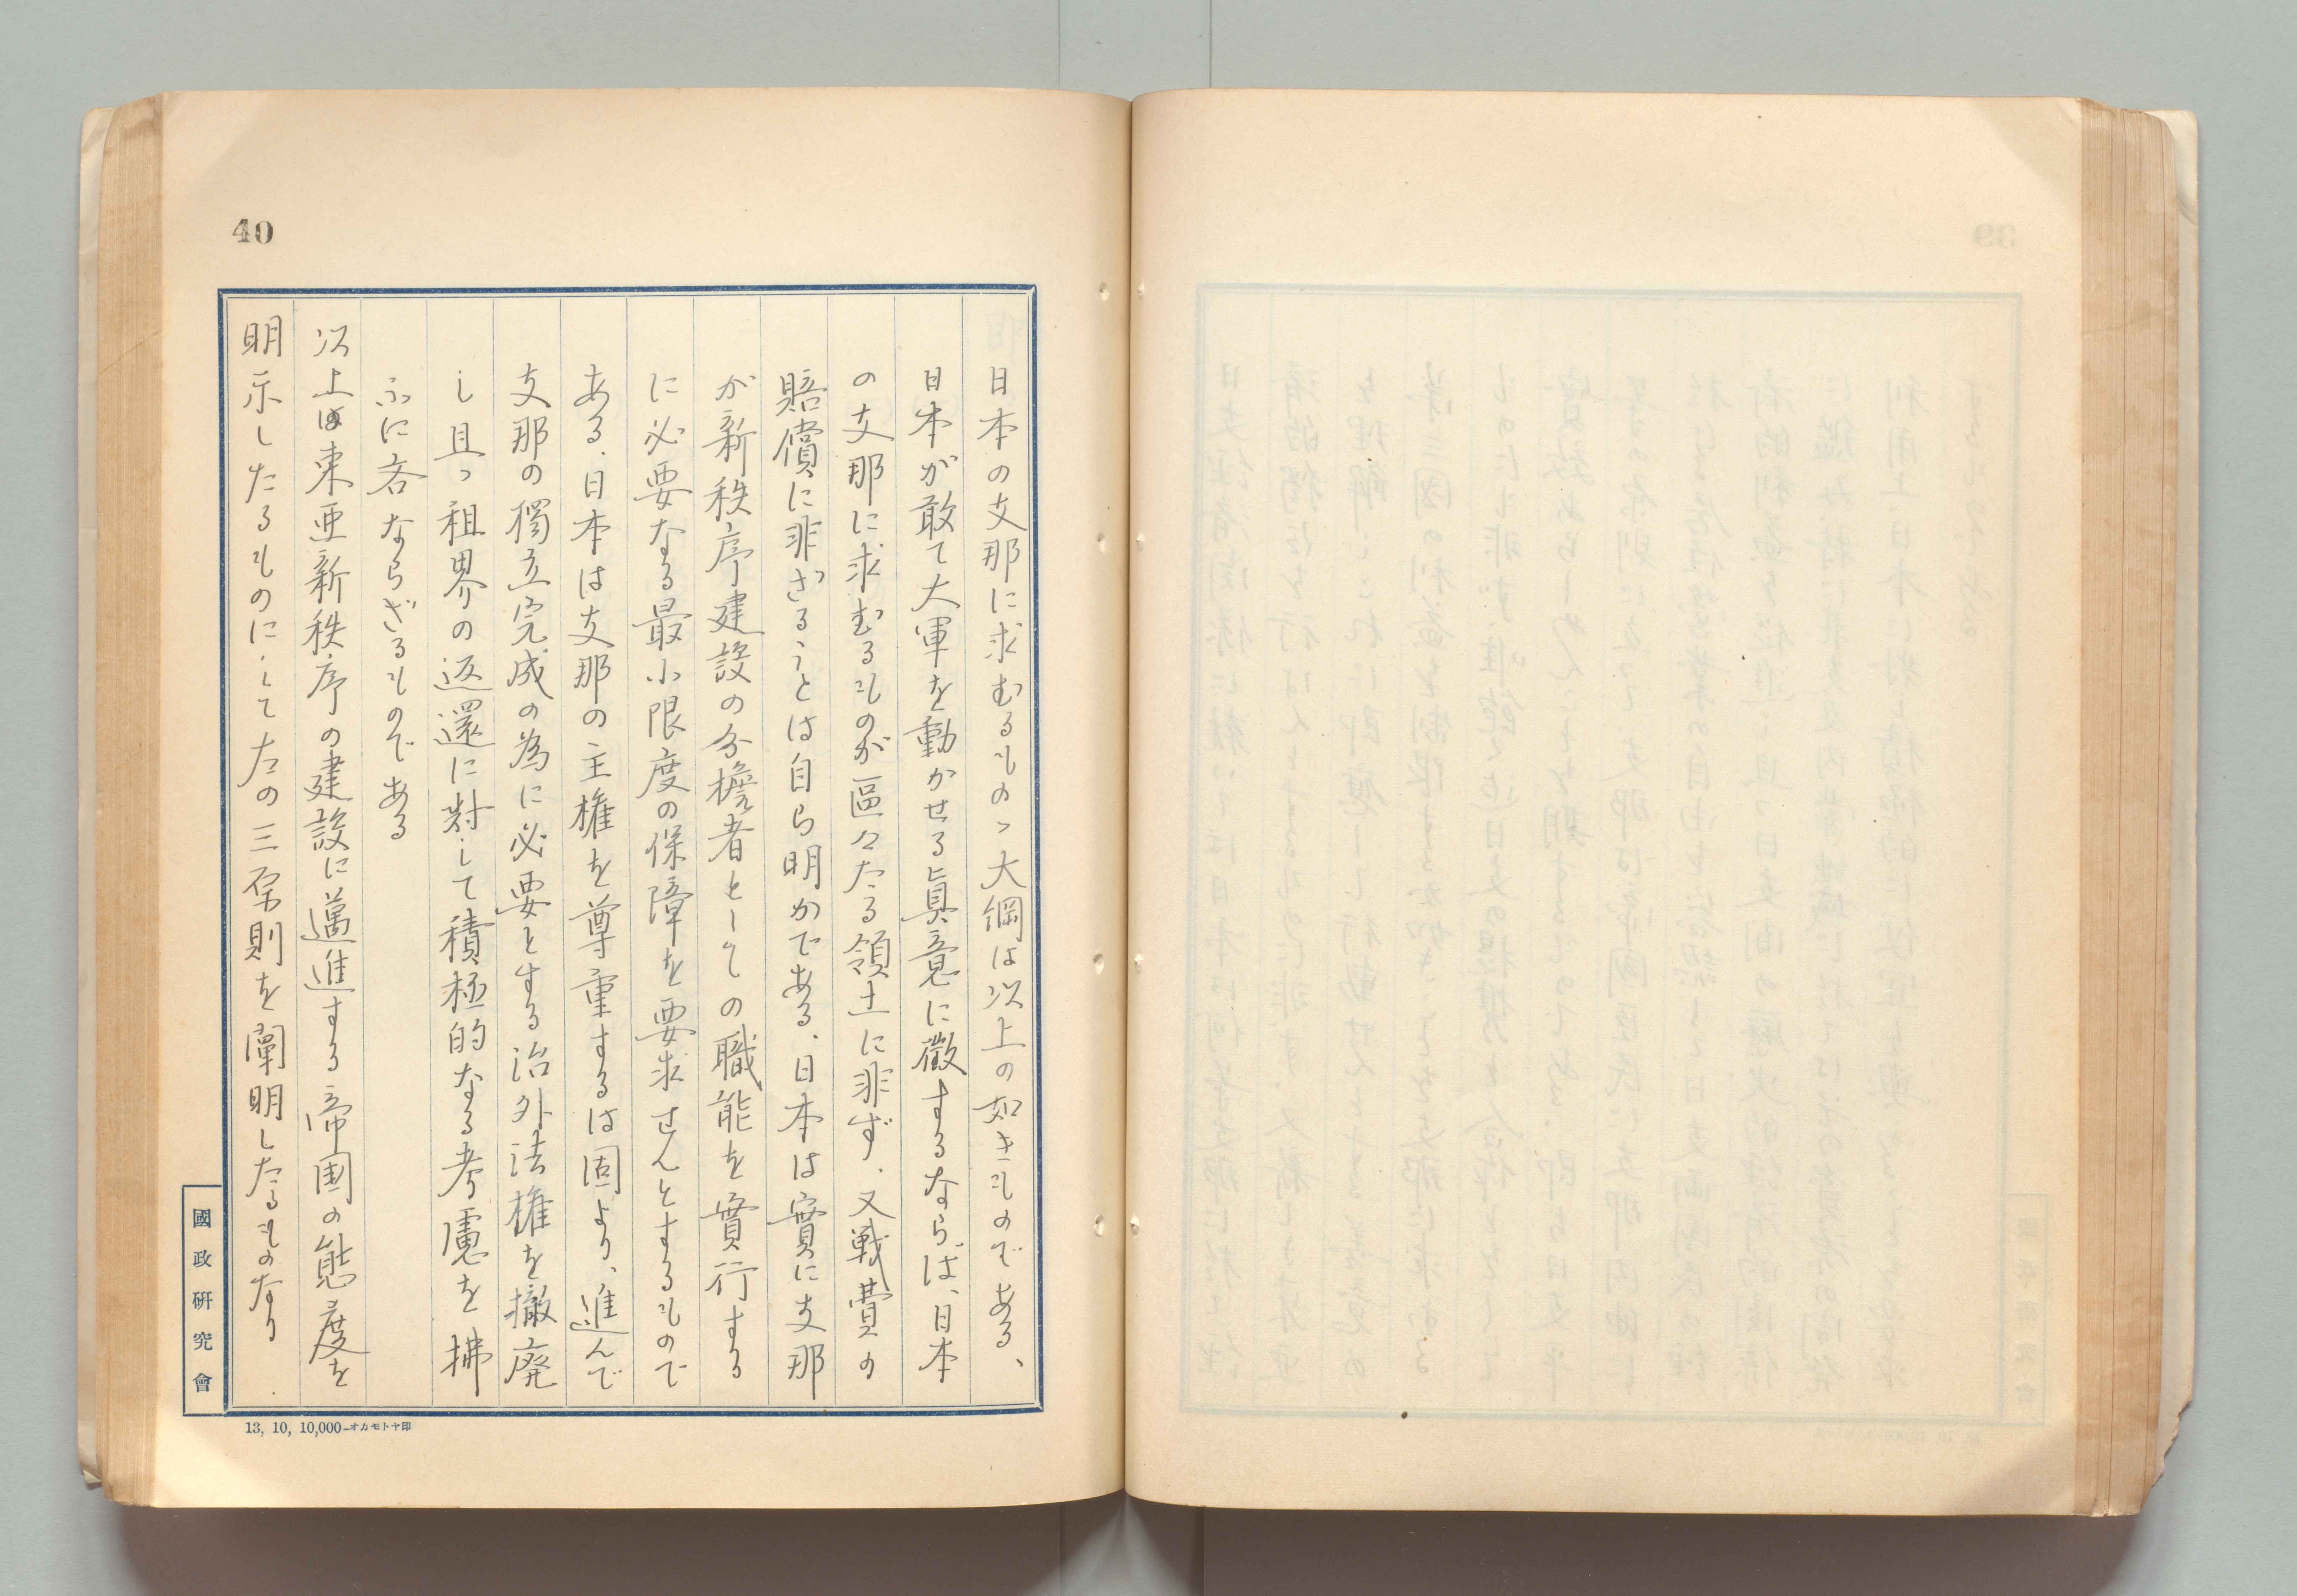 40
日本の支那に求むるものゝ大綱は以上の如きものである、
日本が敢て大軍を動かせる眞意に徴するならば、日本
の支那に求むるものが區々たる領土に非ず、又戦費の
賠償に非ざることは自ら明かである、日本は實に支那
が新秩序建設の分擔者としての職能を實行する
に必要なる最小限度の保障を要求せんとするもので
ある、日本は支那の主権を尊重するは固より、進んで
支那の獨立完成の為に必要とする治外法権を撤廃
し且つ租界の返還に對して積極的なる考慮を拂
ふに吝ならざるものである
以上は東亜新秩序の建設に邁進する帝国の態度を
明示したるものにして左の三原則を闡明したるものなり
國政研究會
13, 10, 10,000-オカモトヤ印